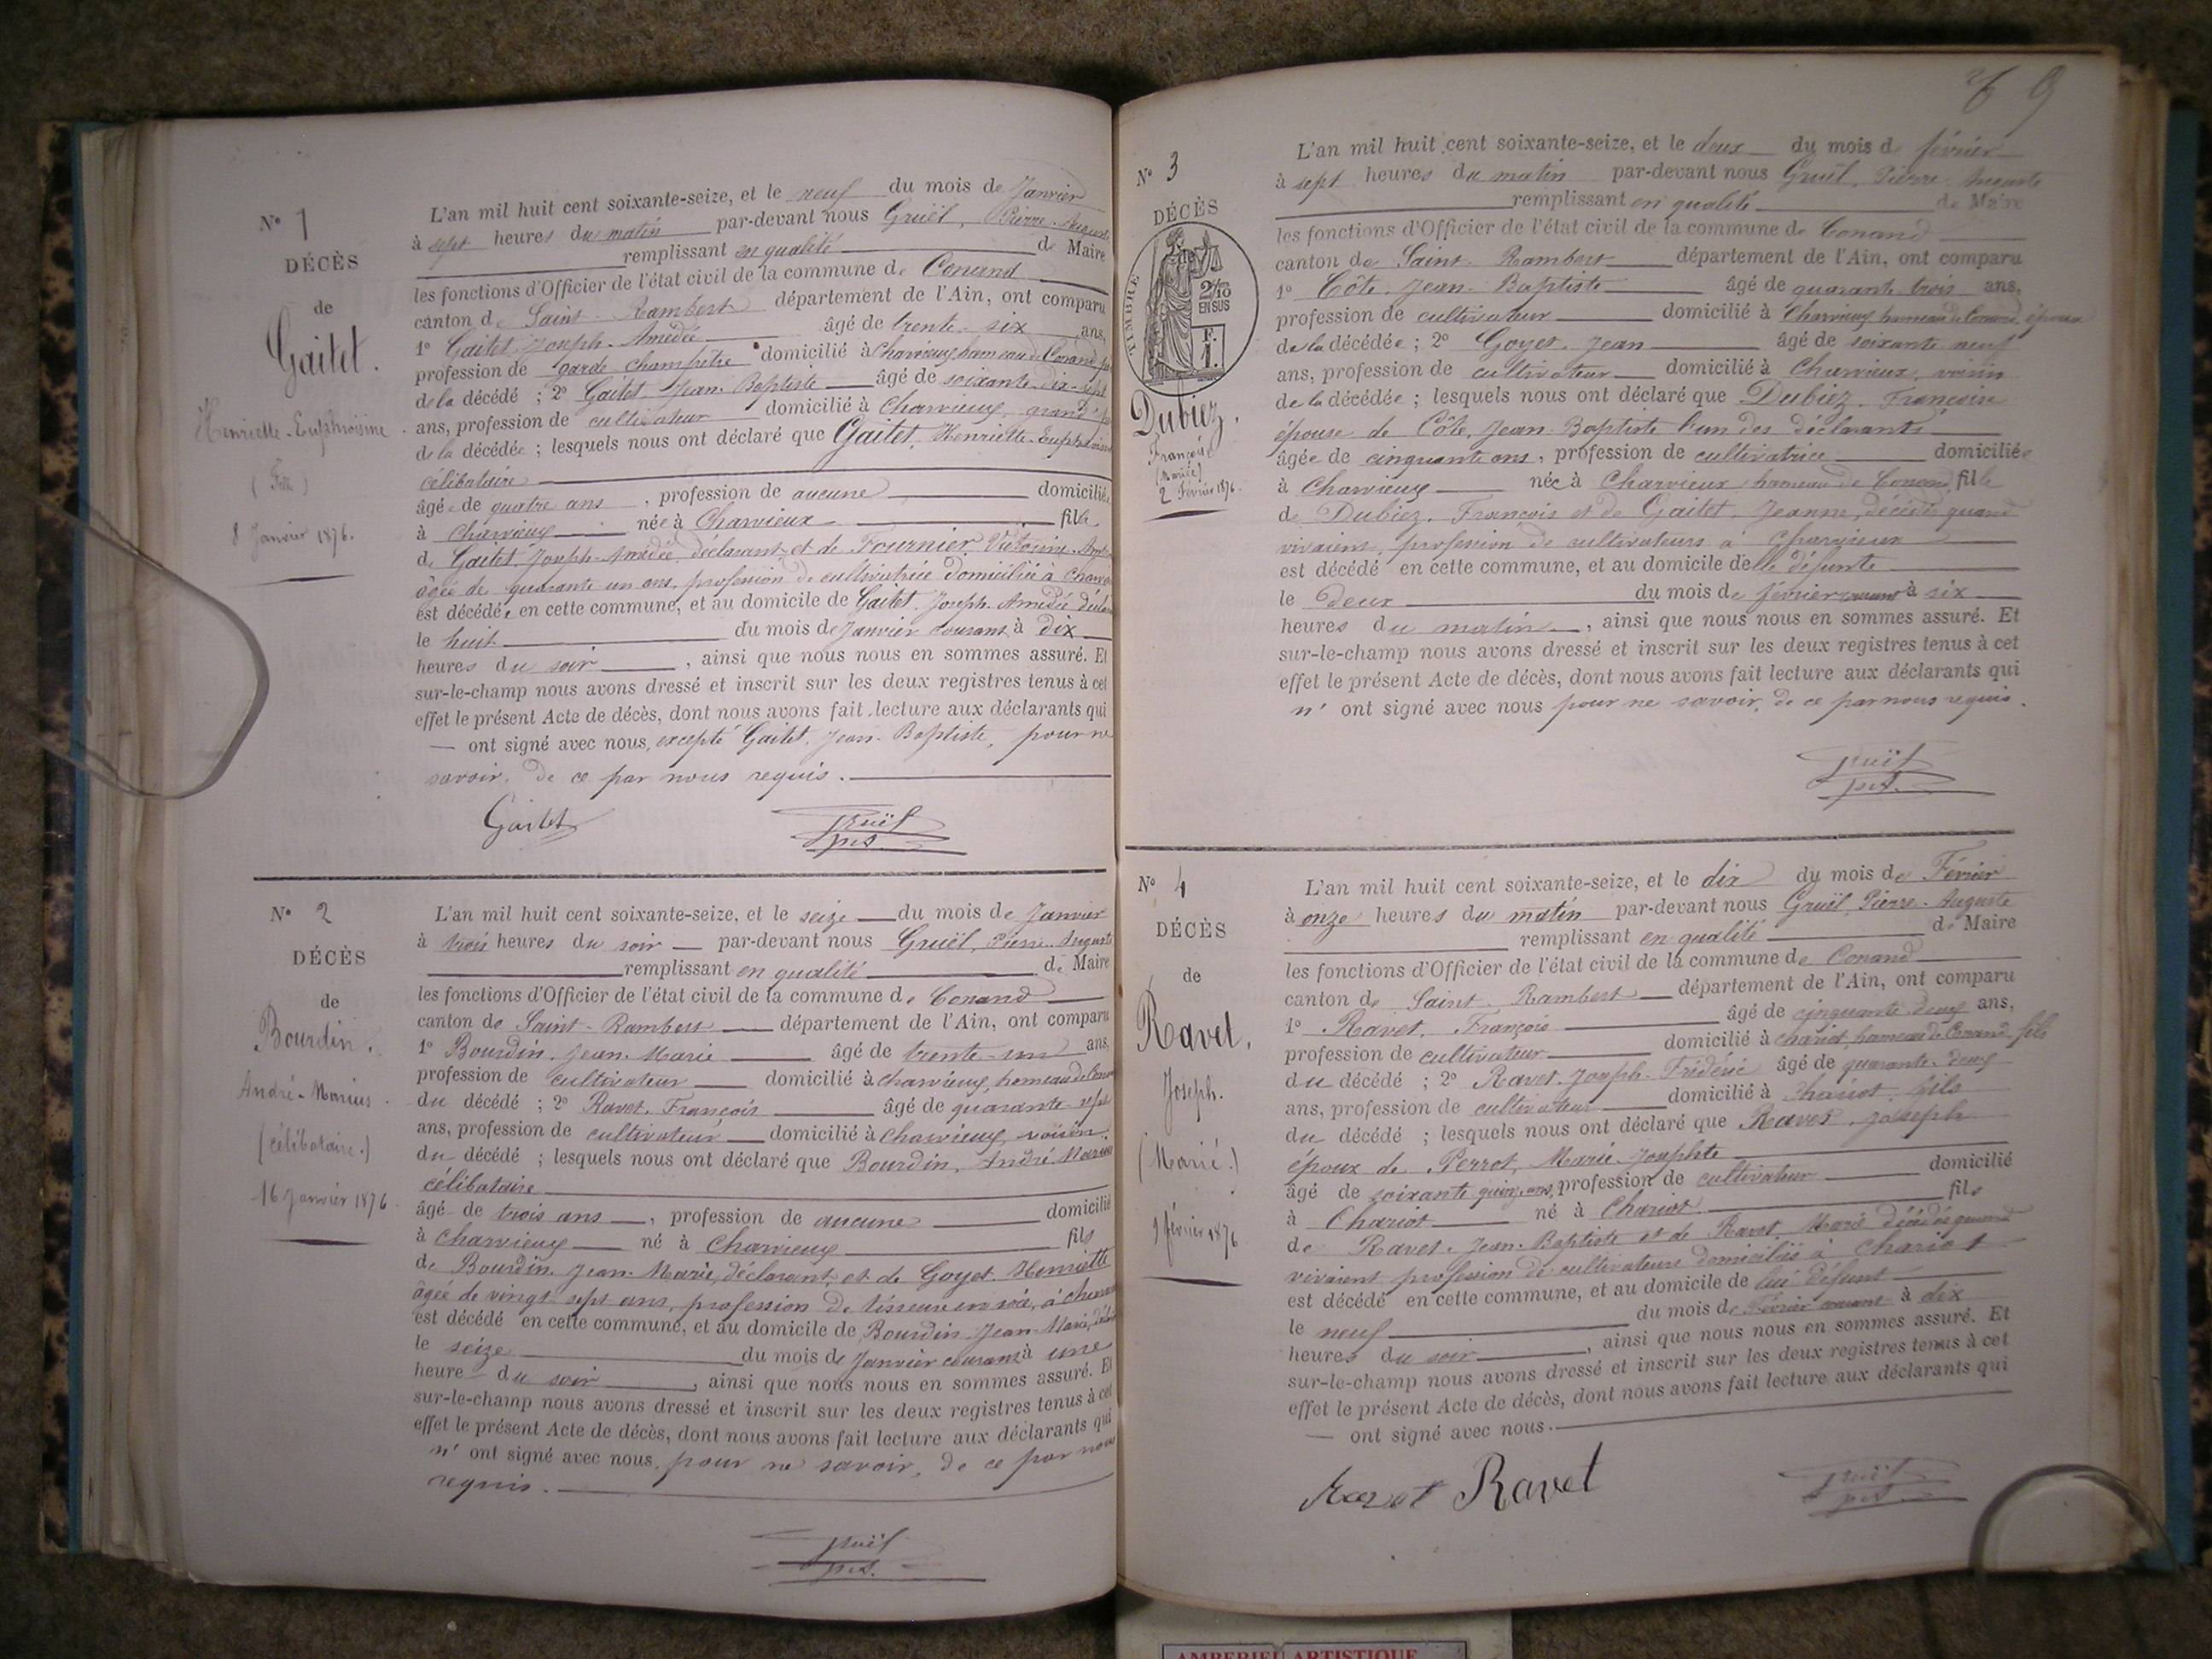 N° 1
DÉCÈS
de
Gaitet.
Henriette-Euphroisine
(Fille)
8 Janvier 1876.
L'an mil huit cent soixante-seize, et le neuf du mois de Janvier
à sept heures du matin par-devant nous Gruël, Pierre-Auguste
remplissant en qualité de Maire
les fonctions d'Officier de l'état civil de la commune de Conand
canton de Saint-Rambert département de l'Ain, ont comparu
1° Gaitet, Joseph-Amédée âgé de trente-six ans,
profession de garde champêtre domicilié à Charvieux, hameau de Conand
de la décédé ; 2° Gaitet, Jean-Baptiste âgé de soixante-dix-sept
ans, profession de cultivateur domicilié à Charvieux, grand
de la décédée ; lesquels nous ont déclaré que Gaitet, Henriette-Euphroisine
célibataire
âgée de quatre ans, profession de aucune domiciliée
à Charvieux née à Charvieux fille
de Gaitet, Joseph-Amédée, déclarant et de Fournier, Victorine
âgée de quarante un ans, profession de cultivatrice domiciliée à
est décédée en cette commune, et au domicile de Gaitet, Joseph-Amédée
le huit du mois de Janvier courant à dix
heures du soir, ainsi que nous nous en sommes assuré. Et
sur-le-champ nous avons dressé et inscrit sur les deux registres tenus à cet
effet le présent Acte de décès, dont nous avons fait lecture aux déclarants qui
— ont signé avec nous, excepté Gaitet, Jean-Baptiste, pour ne
savoir, de ce par nous requis.
Gaitet Gruël
N° 2
DÉCÈS
de
Bourdin.
André-Marius.
(célibataire.)
16 Janvier 1876.
L'an mil huit cent soixante-seize, et le seize du mois de Janvier
à trois heures du soir par-devant nous Gruël, Pierre-Auguste
remplissant en qualité de Maire
les fonctions d'Officier de l'état civil de la commune de Conand
canton de Saint-Rambert département de l'Ain, ont comparu
1° Bourdin, Jean-Marie âgé de trente-un ans,
profession de cultivateur domicilié à Charvieux, hameau de
du décédé ; 2° Ravet, François âgé de quarante-sept
ans, profession de cultivateur domicilié à Charvieux, voisin
du décédé ; lesquels nous ont déclaré que Bourdin, André Marius
célibataire
âgé de trois ans, profession de aucune domicilié
à Charvieux né à Charvieux fils
de Bourdin, Jean-Marie, déclarant, et de Goyet, Henriette
âgée de vingt-sept ans, profession de tisseuse en soie, à
est décédé en cette commune, et au domicile de Bourdin, Jean-Marie,
le seize du mois de Janvier courant à une
heure du soir, ainsi que nous nous en sommes assuré. Et
sur-le-champ nous avons dressé et inscrit sur les deux registres tenus à cet
effet le présent Acte de décès, dont nous avons fait lecture aux déclarants qui
n' ont signé avec nous, pour ne savoir, de ce par nous
requis.
Gruël
9
N° 3
DÉCÈS
de
TIMBRE
2/10
EN SUS
F.
1.
Dubiez.
Françoise
(Mariée)
2 Février 1876.
L'an mil huit cent soixante-seize, et le deux du mois de février
à sept heures du matin par-devant nous Gruël, Pierre-Auguste
remplissant en qualité de Maire
les fonctions d'Officier de l'état civil de la commune de Conand
canton de Saint-Rambert département de l'Ain, ont comparu
1° Côte, Jean-Baptiste âgé de quarante-trois ans,
profession de cultivateur domicilié à Charvieux, hameau de Conand, époux
de la décédée ; 2° Goyet, Jean âgé de soixante-neuf
ans, profession de cultivateur domicilié à Charvieux, voisin
de la décédée ; lesquels nous ont déclaré que Dubiez, Françoise
épouse de Côte, Jean-Baptiste l'un des déclarants
âgée de cinquante ans, profession de cultivatrice domiciliée
à Charvieux née à Charvieux, hameau de Conand, fille
de Dubiez, François et de Gaitet, Jeanne, décédés quand
vivaient, profession de cultivateurs à Charvieux
est décédé en cette commune, et au domicile de elle défunte
le deux du mois de février courant à six
heures du matin, ainsi que nous nous en sommes assuré. Et
sur-le-champ nous avons dressé et inscrit sur les deux registres tenus à cet
effet le présent Acte de décès, dont nous avons fait lecture aux déclarants qui
n' ont signé avec nous pour ne savoir, de ce par nous requis.
Gruël
N° 4
DÉCÈS
de
Ravet.
Joseph.
(Marié.)
9 février 1876
L'an mil huit cent soixante-seize, et le dix du mois de Février
à onze heures du matin par-devant nous Gruël, Pierre-Auguste
remplissant en qualité de Maire
les fonctions d'Officier de l'état civil de la commune de Conand
canton de Saint-Rambert département de l'Ain, ont comparu
1° Ravet, François âgé de cinquante-deux ans,
profession de cultivateur domicilié à Chariot, hameau de Conand, fils
du décédé ; 2° Ravet, Joseph-Frédéric âgé de quarante-deux
ans, profession de cultivateur domicilié à Chariot, fils
du décédé ; lesquels nous ont déclaré que Ravet, Joseph
époux de Perrot, Marie-Josephte
âgé de soixante quinze ans, profession de cultivateur domicilié
à Chariot né à Chariot fils
de Ravet, Jean-Baptiste et de Ravet, Marie décédés quand
vivaient profession de cultivateurs domiciliés à Chariot
est décédé en cette commune, et au domicile de lui défunt
le neuf du mois de Février courant à dix
heures du soir, ainsi que nous nous en sommes assuré. Et
sur-le-champ nous avons dressé et inscrit sur les deux registres tenus à cet
effet le présent Acte de décès, dont nous avons fait lecture aux déclarants qui
— ont signé avec nous.
Ravet Ravet Gruël
AMBERIEU ARTISTIQUE